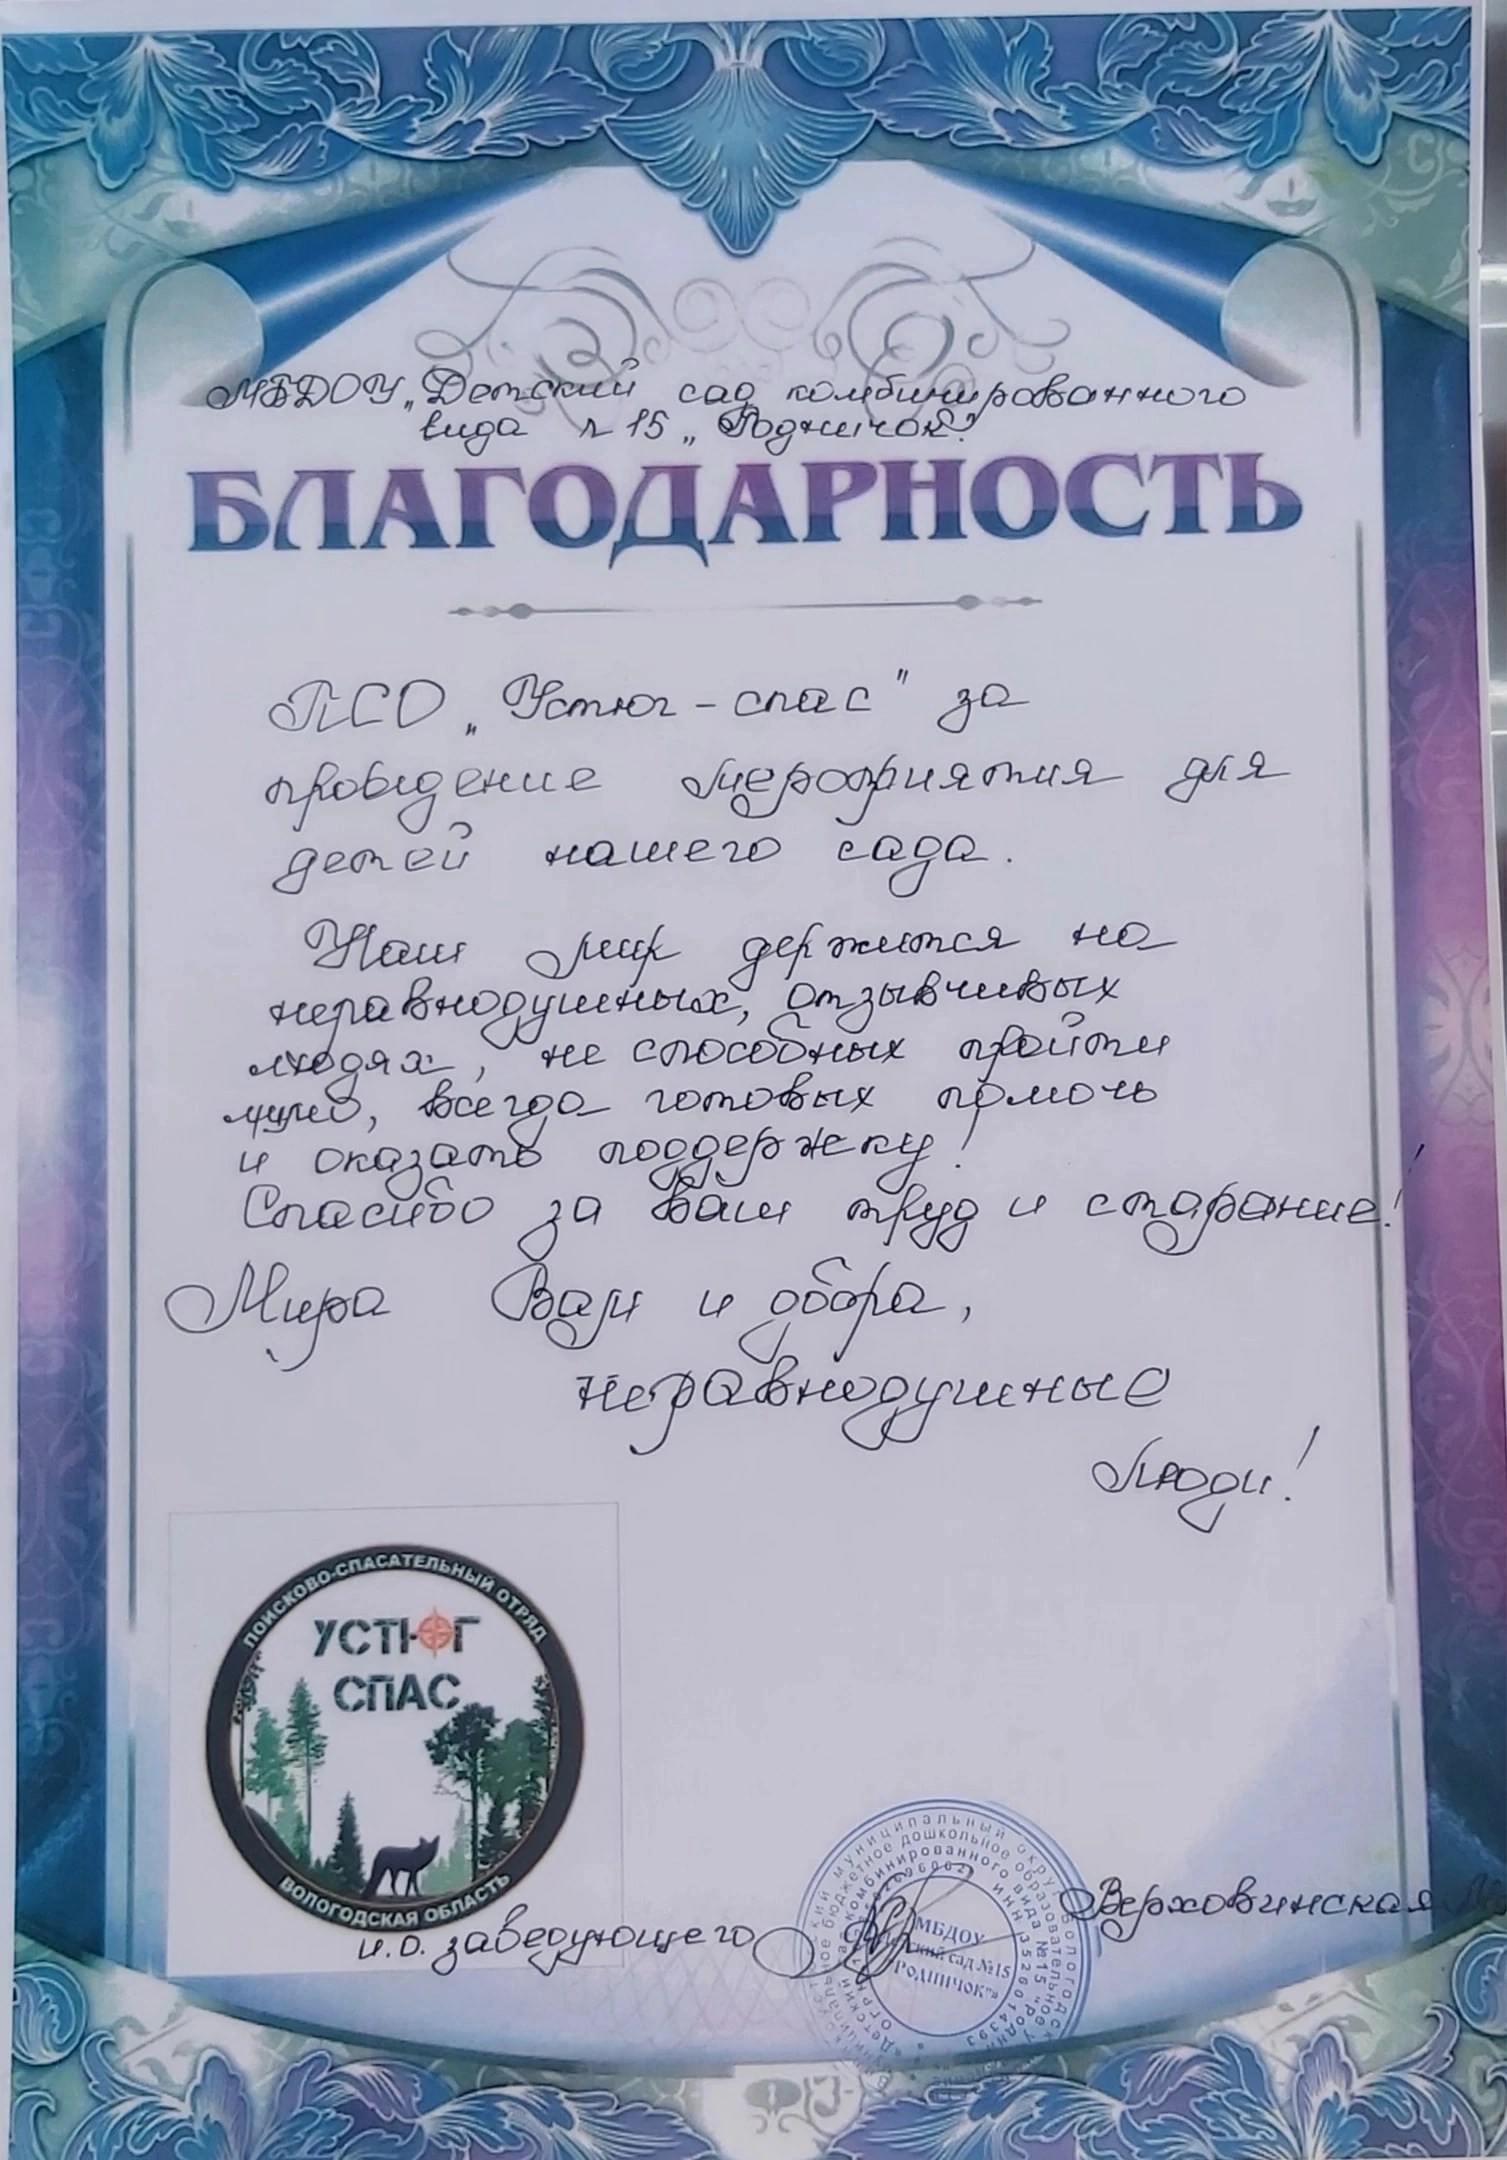 МБДОУ „Детский сад комбинированного
вида № 15 „Родничок"
БЛАГОДАРНОСТЬ
ПСО „Устюг-спас" за
проведение мероприятия для
детей нашего сада.
Наш мир держится на
неравнодушных, отзывчивых
людях, не способных пройти
мимо, всегда готовых помочь
и оказать поддержку!
Спасибо за ваш труд и старание!
Мира Вам и добра,
неравнодушные
люди!
ПОИСКОВО-СПАСАТЕЛЬНЫЙ ОТРЯД
УСТЮГ
СПАС
ВОЛОГОДСКАЯ ОБЛАСТЬ
и.о. заведующего
Верховинская
МБДОУ
сад №15
РОДНИЧОК"
ИНН 3526014393